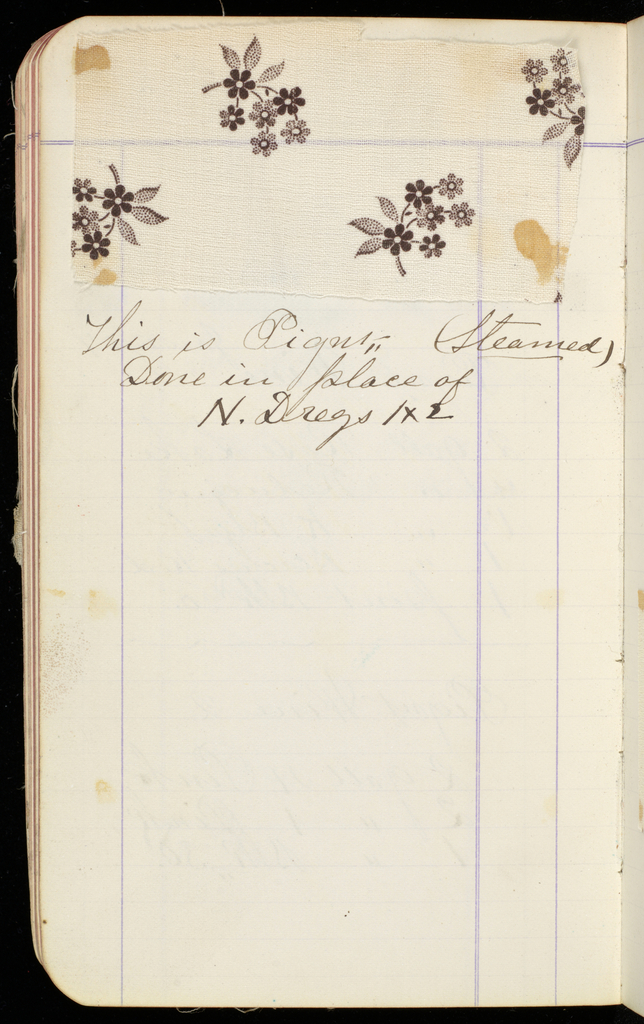 This is Pignt,, (Steamed)
Done in place of
N. Dregs 1x2